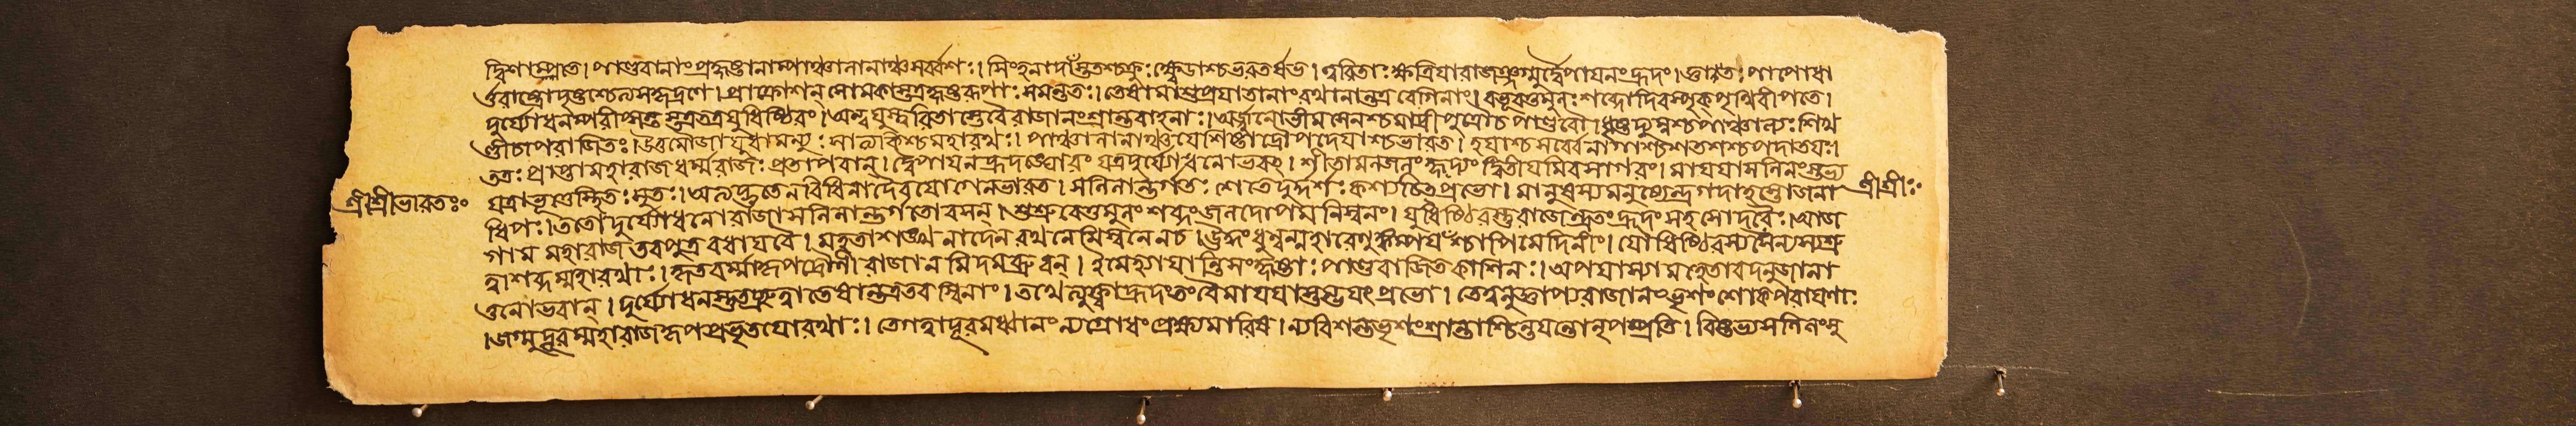 দ্বিশাম্পতে। পাণ্ডবানাং প্রহৃষ্টানাম্পাঞ্চালানাঞ্চ সর্ব্বশঃ। সিংহনাদাঁস্ততশ্চক্রুঃ ক্ষ্বেডাশ্চ ভরতর্ষভ। ত্বরিতাঃ ক্ষত্রিযা রাজঞ্জগ্মুর্দ্বৈপাযনং হ্রদং। জ্ঞাতঃ পাপো ধা
র্ত্তরাষ্ট্রো দৃষ্টশ্চেত্যসকৃদ্রণে। প্রাক্রোশন্ সোমকাস্তত্র হৃষ্টরূপাঃ সমন্ততঃ। তেষামাশু প্রযাতানাং রথানান্তত্র বেগিনাং। বভূব তুমুলঃ শব্দো দিবস্পৃক্ পৃথিবীপতে।
দুর্য্যোধনম্পরীপ্সন্তস্তত্র তত্র যুধিষ্ঠিরং। অন্বযুস্ত্বরিতাস্তে বৈ রাজানং শ্রান্তবাহনাঃ। অর্জ্জুনো ভীমসেনশ্চ মাদ্রীপুত্রৌ চ পাণ্ডবৌ। ধৃষ্টদ্যুম্নশ্চ পাঞ্চাল্যঃ শিখ
ণ্ডী চাপরাজিতঃ। উত্তমৌজা যুধামন্যুঃ সাত্যকিশ্চ মহারথঃ। পাঞ্চালানাঞ্চ যে শিষ্টা দ্রৌপদেযাশ্চ ভারত। হযাশ্চ সর্ব্বে নাগাশ্চ শতশশ্চ পদাতযঃ।
ততঃ প্রাপ্তা মহারাজ ধর্ম্মরাজঃ প্রতাপবান্। দ্বৈপাযনহ্রদঙ্ঘোরং যত্র দুর্য্যোধনোভবৎ। শীতামলজলং হৃদ্যং দ্বিতীযমিব সাগরং। মাযযা সলিলং স্তভ্য
শ্রীশ্রীভারতঃ॰ যত্রাভূত্তে স্থিতঃ সুতঃ। অত্যদ্ভুতেন বিধিনা দৈবযোগেন ভারত। সলিলান্তর্গতঃ শেতে দুর্দ্দর্শঃ কস্যচিত্প্রভো। মানুষস্য মনুষ্যেন্দ্র গদাহস্তো জনা শ্রীশ্রীঃ॰
ধিপঃ। ততো দুর্য্যোধনো রাজা সলিলান্তর্গতো বসন্। শুশ্রুবে তুমুলং শব্দং জলদোপমনিস্বনং। যুধিষ্ঠিরস্তু রাজেন্দ্র তং হ্রদং সহ সোদরৈঃ। আজ
গাম মহারাজ তব পুত্রবধায বৈ। মহতা শঙ্খনাদেন রথনেমিস্বনেন চ। উদ্ধং ধুন্বন্মহারেণুং কম্পযংশ্চাপি মেদিনীং। যৌধিষ্ঠিরস্য সৈন্যস্য শ্রু
ত্বা শব্দম্মহারথাঃ। কৃতবর্ম্মা কৃপদ্রৌণী রাজানমিদমব্রুবন্। ইমে হ্যাযান্তি সংহৃষ্টাঃ পাণ্ডবা জিতকাশিনঃ। অপযাস্যামহে তাবদনুজানা
তু নো ভবান্। দুর্য্যোধনস্তু তচ্ছ্রুত্বা তেষান্তত্র তরস্বিনাং। তথেত্যুক্ত্বা হ্রদং তং বৈ মাযযাস্তম্ভযৎ প্রভো। তে ত্বনুজ্ঞাপ্য রাজানং ভৃশং শোকপরাযণাঃ
। জগ্মুর্দূরম্মহারাজ কৃপপ্রভৃতযো রথাঃ। তে গত্বা দূরমধ্বানং ন্যগ্রোধং প্রেক্ষ্য মারিষ। ন্যবিশন্ত ভৃশং শ্রান্তাশ্চিন্তযন্তো নৃপম্প্রতি। বিষ্টভ্য সলিলং সু